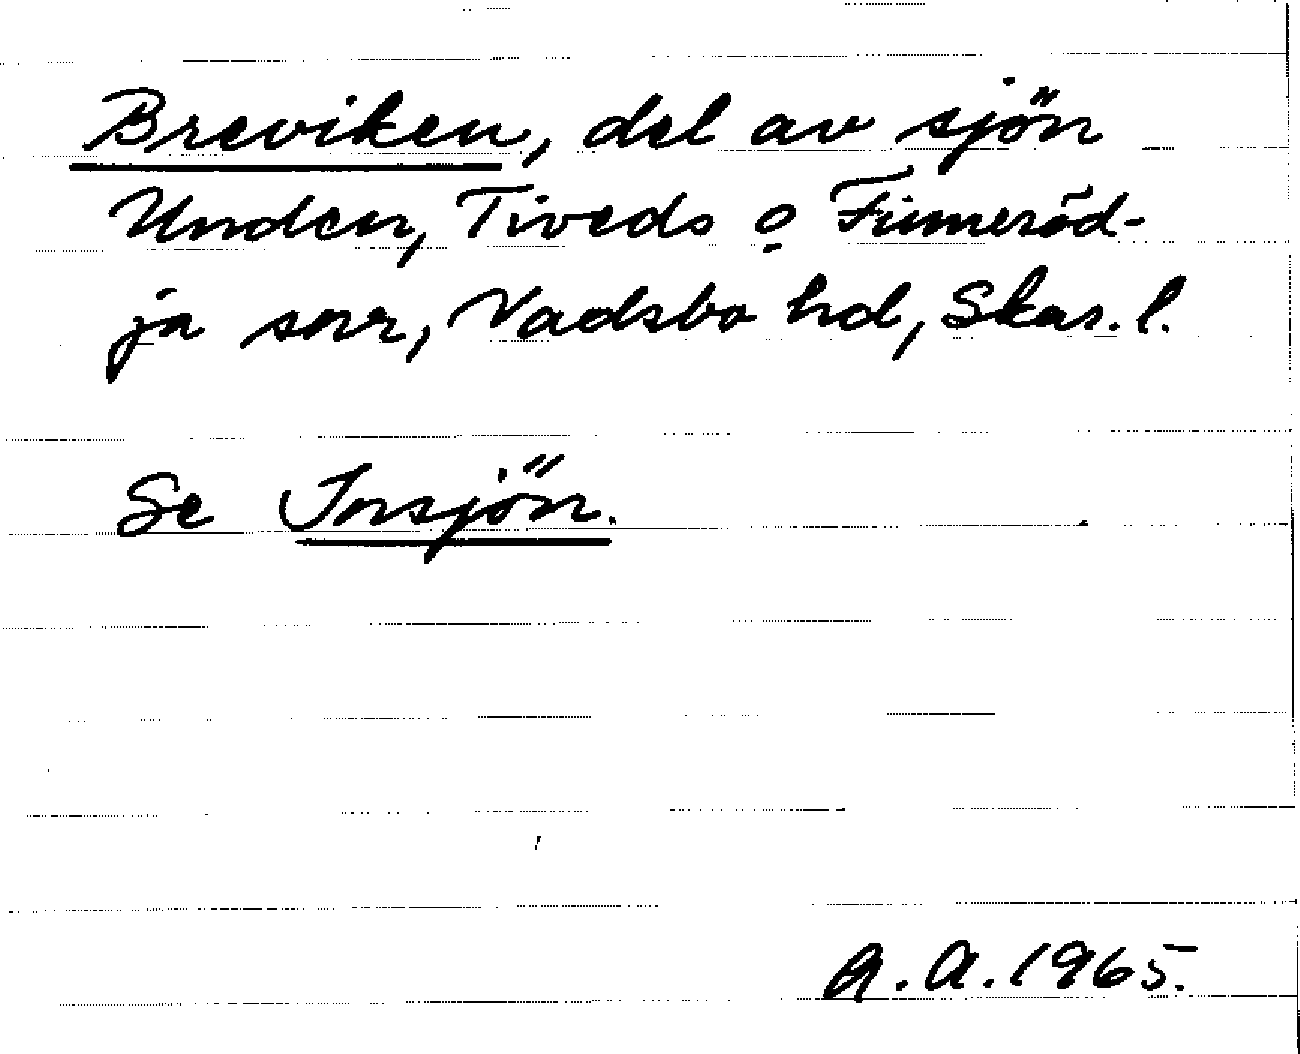 Breviken, del av sjön
Unden, Tiveds o Finneröd-
ja snr, Vadsbo hd, Skar. l.
Se Insjön.
A. A. 1965.